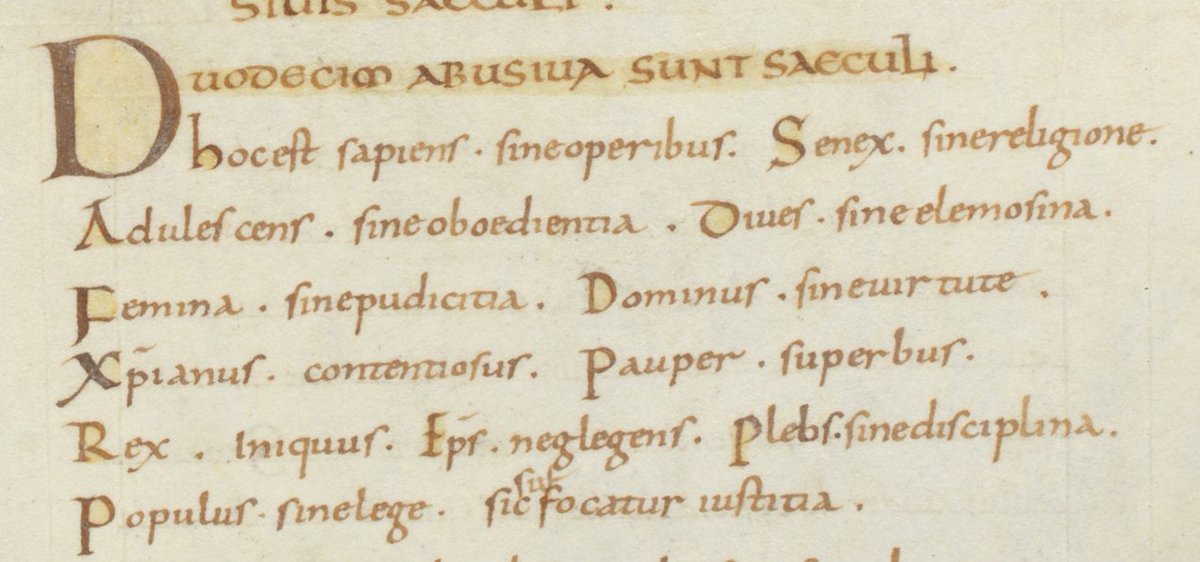 SIUIS SAECULI .
DUODECIM ABUSIUA SUNT SAECULI .
hoc est sapiens . sine operibus . Senex . sine religione .
Adulescens . sine oboedientia . Diues . sine elemosina .
Femina . sine pudicitia . Dominus . sine uirtute .
Xp̄ianus . contentiosus . Pauper . superbus .
Rex . Iniquus . Ep̄s . neglegens . Plebs . sine disciplina .
Populus . sine lege . sic suf focatur iustitia .